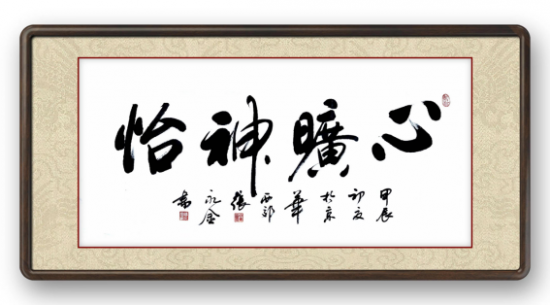 心曠神怡
甲辰初夏於京華西郊張永金書